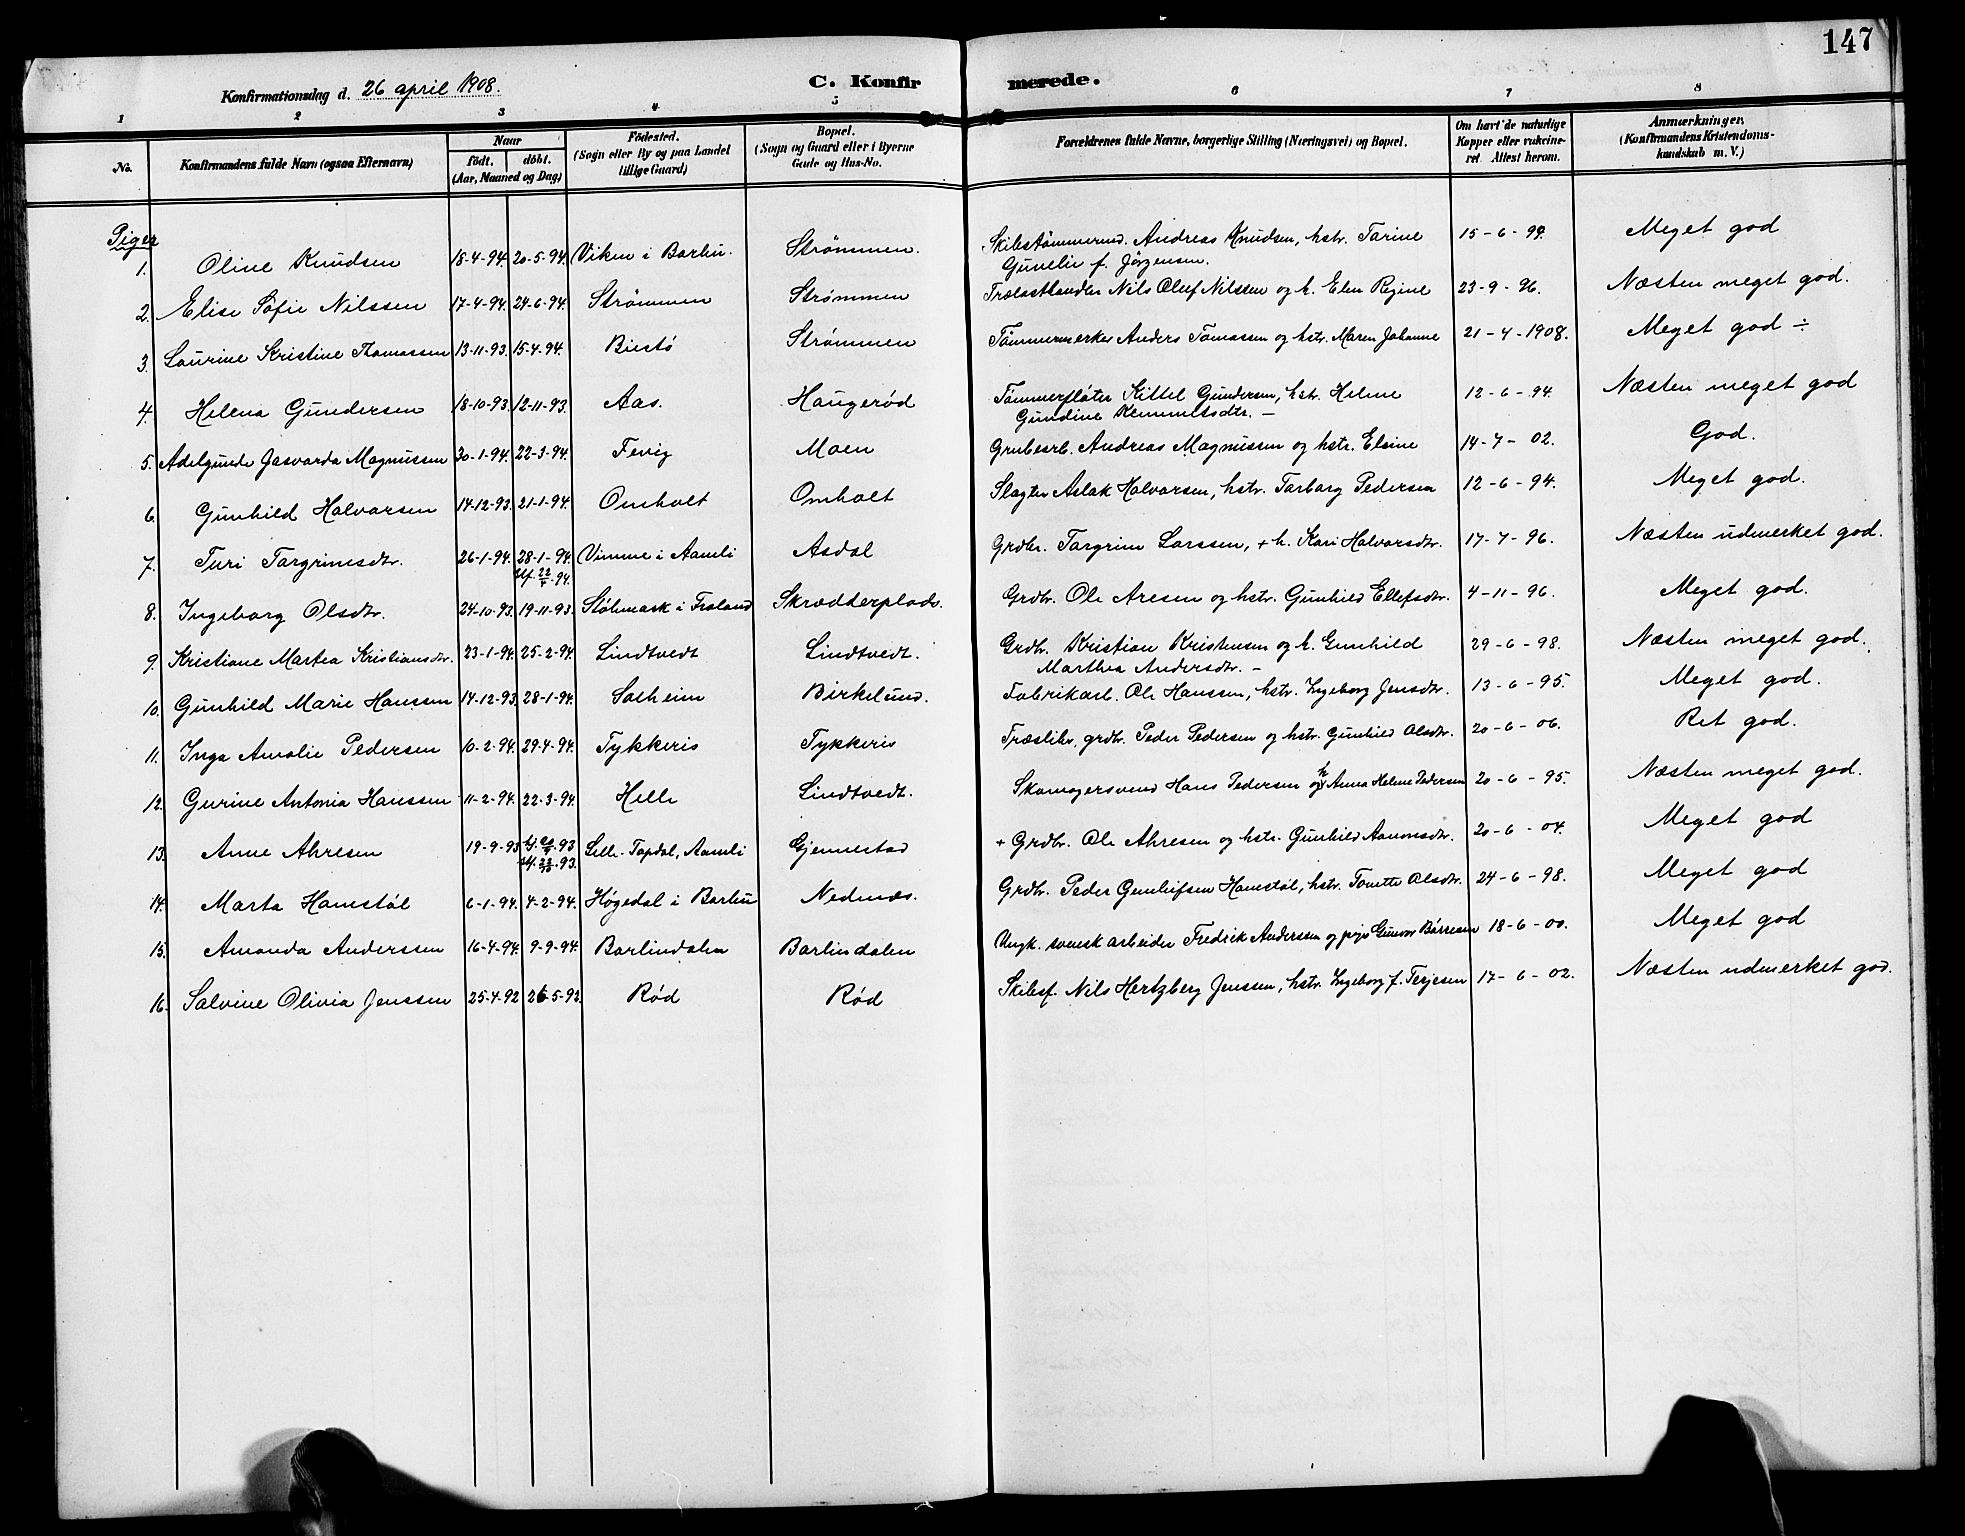 147
Konfirmationsdag d. 26 april 1908.
C. Konfirmerede.
1 2 3 4 5 6 7 8
No. Konfirmandens fulde Navn (ogsaa Efternavn) Naar født. døbt. (Aar, Maaned og Dag) Fødested. (Sogn eller By og paa Landet tillige Gaard) Bopæl. (Sogn og Gaard eller i Byerne Gade og Hus-No. Forældrenes fulde Navne, borgerlige Stilling (Næringsvei) og Bopæl. Om havt de naturlige Kopper eller vakcineret. Attest herom. Anmærkninger. (Konfirmandens Kristendomskundskab m. V.)
Piger
1. Oline Knudsen 18-4-94. 20-5-94. Viken i Barbu. Strømmen. Skibstømmermd. Andreas Knudsen, hstr. Tarine 15-6-94. Meget god
Gunelie f. Jörgensen.
2. Elise Sofie Nilssen 17-4-94. 24-6-94. Strömmen Strømmen Trælasthandler Nils Oluf Nilssen og h. Elen Regine 23-9-96. Næsten meget god.
3. Laurine Kristine Thomassen 13-11-93. 15-4-94. Biestö Strømmen Tømmermerker Anders Tomassen og hstr. Maren Johanne 21-4-1908. Meget god ÷
4. Helena Gundersen 18-10-93. 12-11-93. Aas. Haugerød Tømmerfløter Kittel Gundersen, hstr. Helene 12-6-94. Næsten meget god
Gundine Kemmeltsdtr. –
5. Adelgunde Jasvarda Magnussen 30-1-94. 22-3-94. Fevig Moen Grubearb. Andreas Magnussen og hstr. Elsine 14-7-02. God.
6. Gunhild Halvorsen 14-12-93. 21-1-94. Omholt Omholt Slagter Aslak Halvorsen, hstr. Tarborg Pedersen 12-6-94. Meget god.
7. Turi Targrimsdtr. 26-1-94. 28-1-94. Vimme i Aamli Asdal Grdbr. Targrim Larssen, + h. Kari Halvorsdtr. 17-7-96. Næsten udmerket god.
8. Ingeborg Olsdtr. 24-10-93. 19-11-93 Stølsmark i Froland Skrædderplads. Grdbr. Ole Aresen og hstr. Gunhild Ellefsdtr. 4-11-96. Meget god.
9. Kristiane Martea Kristiansdtr. 23-1-94. 25-2-94. Lindtvedt Lindtvedt. Grdbr. Kristian Kristensen og h. Gunhild 29-6-98. Næsten meget god.
Marthea Andersdtr. –
10. Gunhild Marie Hanssen 14-12-93. 28-1-94. Solheim Birkelund. Fabrikarb. Ole Hanssen, hstr. Ingeborg Jensdtr. 13-6-95. Meget god.
11. Inga Amalie Pedersen 10-2-94. 29-4-94. Tykkeris Tykkeris Træslibr. grdbr. Peder Pedersen og hstr. Gunhild Olsdtr. 20-6-06. Ret god.
12. Gurine Antonia Hanssen 11-2-94. 22-3-94. Helle Lindtvedt. Skomagersvend Hans Pedersen og h. Anna Helene Pedersen 20-6-95. Næsten meget god.
13. Anne Ahresen 19-9-93 Lille-Topdal, Aamli Gjennestad + Grdbr. Ole Ahresen og hstr. Gunhild Aanonsdtr. 20-6-04. Meget god
14. Marta Hamstøl 6-1-94. 4-2-94. Høgedal i Barbu Nednæs. Grdbr. Peder Gunleifsen Hamstøl, hstr. Tonette Olsdtr. 24-6-98. Meget god
15. Amanda Anderssen 16-4-94. 9-9-94. Barlindalen Barlindalen Ungk. svensk arbeider Fredrik Anderssen og pige Gunvor Børresen 18-6-00. Meget god
16. Salvine Olivia Jenssen 25-4-92 26-5-92. Rød Rød Skibsf. Nils Hertzberg Jenssen, hstr. Ingeborg f. Terjesen 17-6-02. Næsten udmerket god.